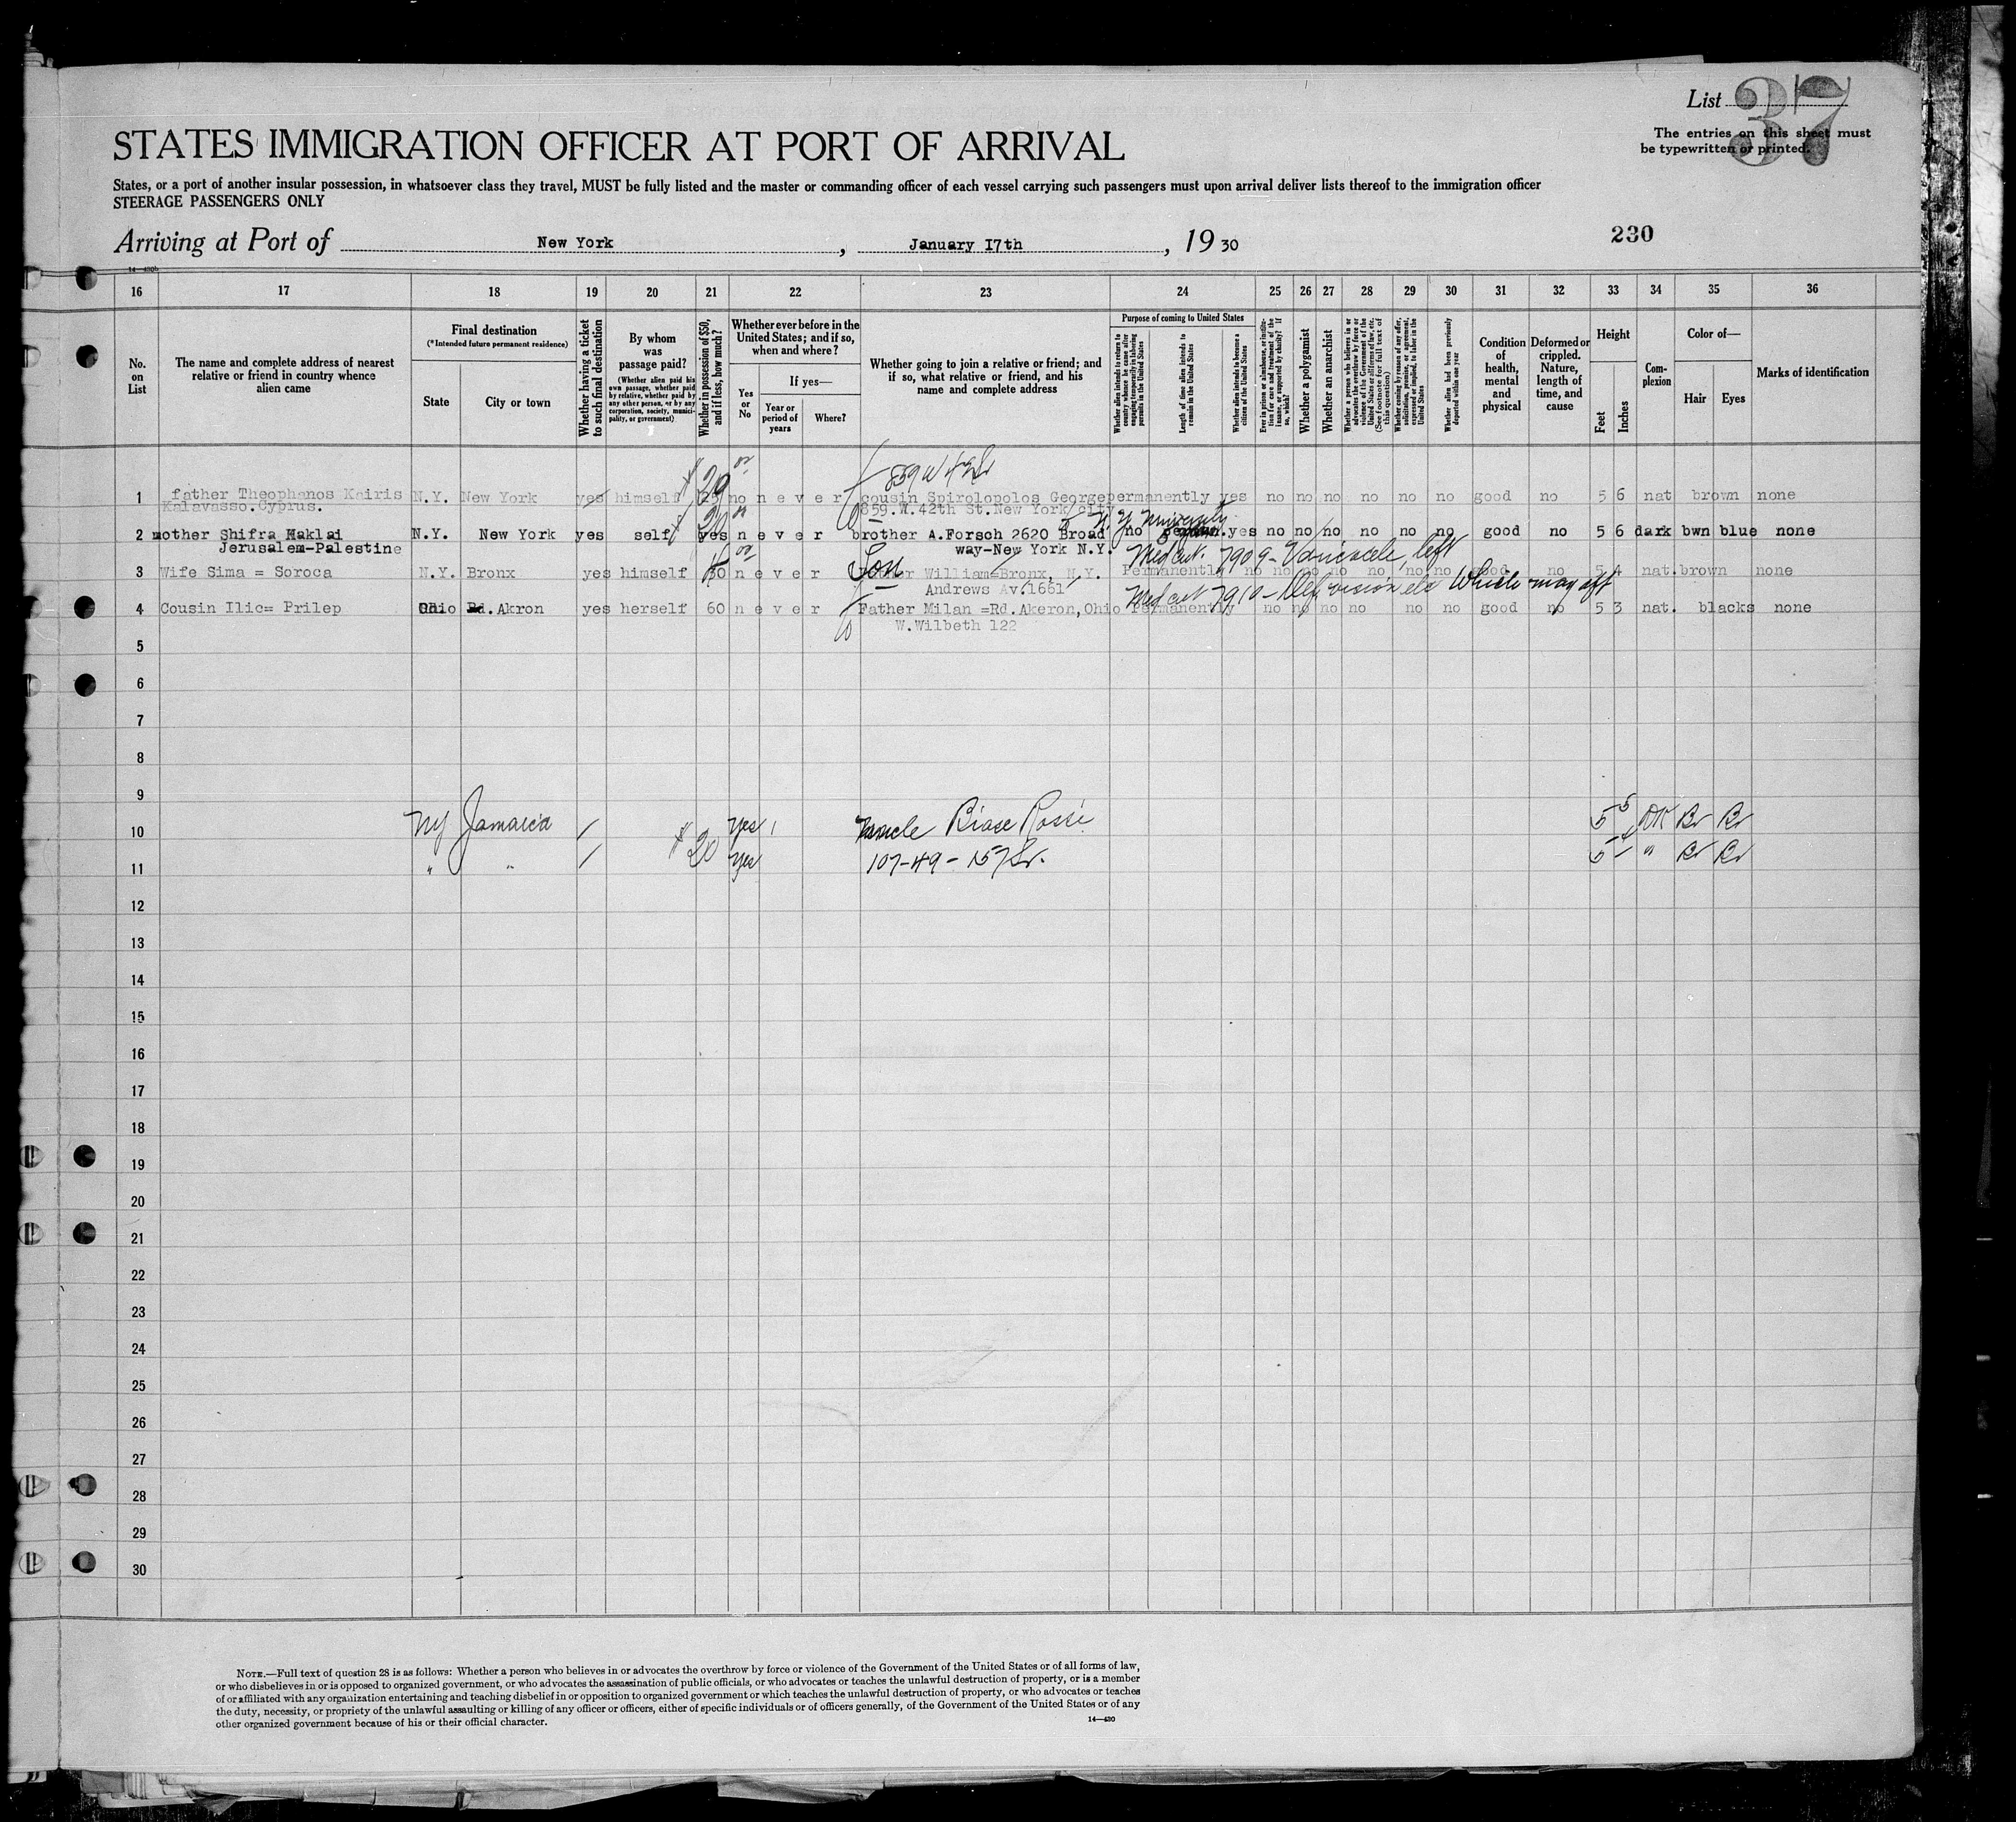 List 37
The entries on this sheet must
be typewritten or printed.
STATES IMMIGRATION OFFICER AT PORT OF ARRIVAL
States, or a port of another insular possession, in whatsoever class they travel, MUST be fully listed and the master or commanding officer of each vessel carrying such passengers must upon arrival deliver lists thereof to the immigration officer
STEERAGE PASSENGERS ONLY
Arriving at Port of New York, January 17th, 1930
230
16 17 18 19 20 21 22 23 24 25 26 27 28 29 30 31 32 33 34 35 36
No. on List
The name and complete address of nearest relative or friend in country whence alien came
Final destination
(*Intended future permanent residence)
State
City or town
Whether having a ticket to such final destination
By whom was passage paid?
(Whether alien paid his own passage, whether paid by relative, whether paid by any other person, or by any corporation, society, municipality, or government)
Whether in possession of $50, and if less, how much?
Whether ever before in the United States; and if so, when and where?
Yes or No
If yes—
Year or period of years
Where?
Whether going to join a relative or friend; and if so, what relative or friend, and his name and complete address
Purpose of coming to United States
Whether alien intends to return to country whence he came after engaging temporarily in laboring pursuits in the United States
Length of time alien intends to remain in the United States
Whether alien intends to become a citizen of the United States
Ever in prison or almshouse, or institution for care and treatment of the insane, or supported by charity? If so, which?
Whether a polygamist
Whether an anarchist
Whether a person who believes in or advocates the overthrow by force or violence of the Government of the United States or all forms of law, etc. (See footnote for full text of this question)
Whether coming by reason of any offer, solicitation, promise, or agreement, expressed or implied, to labor in the United States
Whether alien had been previously deported within one year
Condition of health, mental and physical
Deformed or crippled. Nature, length of time, and cause
Height
Feet
Inches
Complexion
Color of—
Hair
Eyes
Marks of identification
859 W 42 St
1 father Theophanos Kairis N.Y. New York yes himself $20 25 no never cousin Spirolopolos George permanently yes no no no no no no good no 5 6 nat brown none
Kalavasso.Cyprus. 859.W.42th St.New York city
N.Y. University
2 mother Shifra Maklai N.Y. New York yes self $20 yes never brother A.Forsch 2620 Broad no yes no no no no no no good no 5 6 dark bwn blue none
Jerusalem-Palestine way-New York N.Y.
Med cert. 7909 - Varicocele, left
3 Wife Sima = Soroca N.Y. Bronx yes himself never Son William=Bronx, N.Y. Permanently no no no no no no no good no 5 4 nat. brown none
Andrews Av.1661
Med cert 7910 - Def. vision etc Which may aff
4 Cousin Ilic= Prilep Ohio Rd. Akron yes herself 60 never Father Milan =Rd.Akeron,Ohio Permanently no no no no no no good no 5 3 nat. blacks none
W.Wilbeth 122
5
6
7
8
9
10 NY Jamaica / yes Uncle Biase Rossi 5 5 DK Br Br
11 " " / $20 yes 107-49-157 St. 5 " Br Br
12
13
14
15
16
17
18
19
20
21
22
23
24
25
26
27
28
29
30
NOTE.—Full text of question 28 is as follows: Whether a person who believes in or advocates the overthrow by force or violence of the Government of the United States or of all forms of law,
or who disbelieves in or is opposed to organized government, or who advocates the assassination of public officials, or who advocates or teaches the unlawful destruction of property, or is a member
of or affiliated with any organization entertaining and teaching disbelief in or opposition to organized government or which teaches the unlawful destruction of property, or who advocates or teaches
the duty, necessity, or propriety of the unlawful assaulting or killing of any officer or officers, either of specific individuals or of officers generally, of the Government of the United States or of any
other organized government because of his or their official character.
14—430